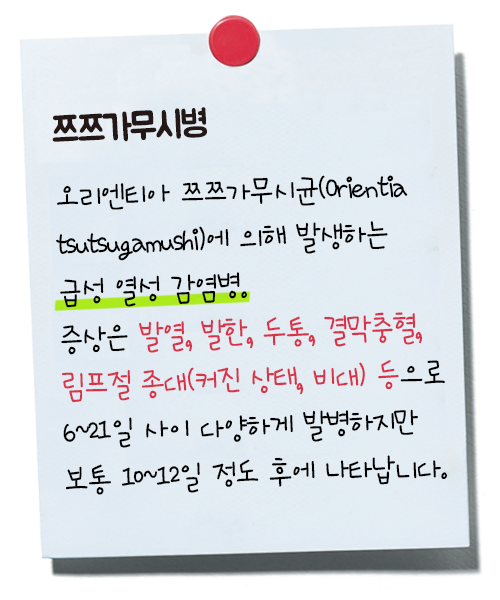 쯔쯔가무시병
오리엔티아 쯔쯔가무시균(Orientia
tsutsugamushi)에 의해 발생하는
급성 열성 감염병.
증상은 발열, 발한, 두통, 결막충혈,
림프절 종대(커진 상태, 비대) 등으로
6~21일 사이 다양하게 발병하지만
보통 10~12일 정도 후에 나타납니다.